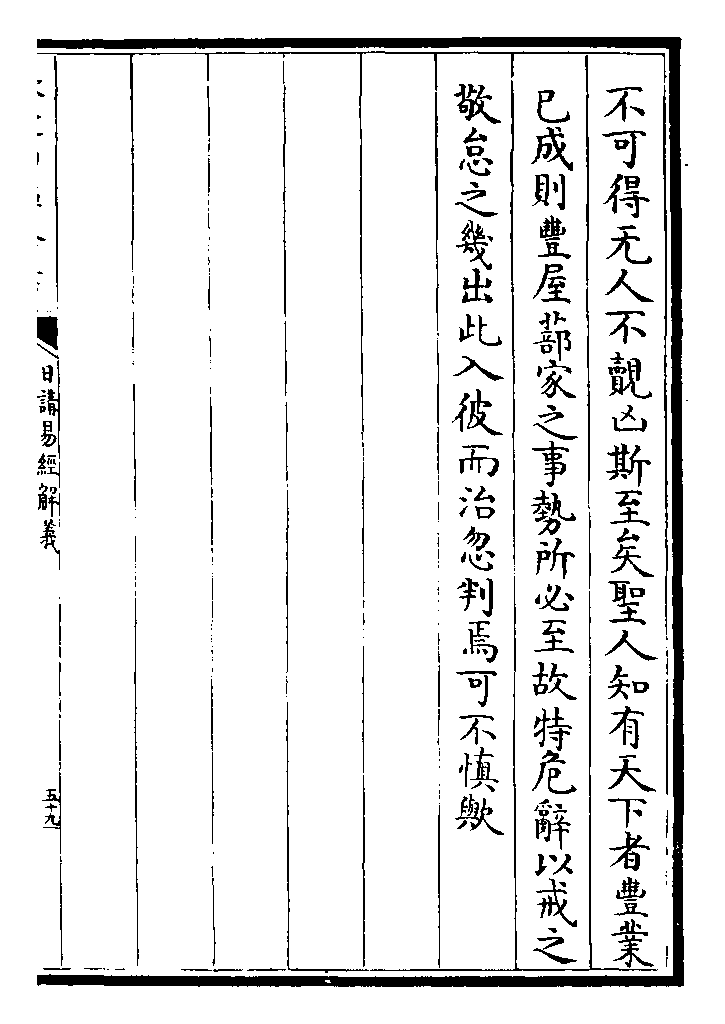 不可得无人不覿凶斯至矣聖人知有天下者豐業
已成則豐屋蔀家之事勢所必至故特危辭以戒之
敬怠之幾出此入彼而治忽判焉可不慎歟
日講易經解義
五十九